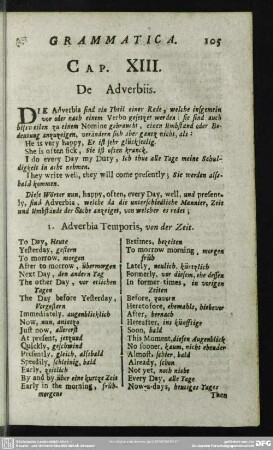 GRAMMATICA. 105
CAP. XIII.
De Adverbiis.
DIE Adverbia sind ein Theil einer Rede, welche insgemein
vor oder nach einem Verbo gesetzet werden: sie sind auch
bißweilen zu einem Nomine gebraucht, einen Umbstand oder Be-
deutung anzuzeigen, verändern sich aber gantz nicht, als:
He is very happy, Er ist sehr glückselig.
She is often sick, Sie ist offten kranck.
I do every Day my Duty, Ich thue alle Tage meine Schul-
digkeit in acht nehmen.
They write well, they will come presently; Sie werden alse-
bald kommen.
Diese Wörter nun, happy, often, every Day, well, und present-
ly, sind Adverbia, welche da die unterschiedliche Mannier, Zeit
und Umbstände der Sache anzeiget, von welcher es redet;
1. Adverbia Temporis, von der Zeit.
To Day, Heute
Yesterday, gestern
To morrow, morgen
After to morrow, übermorgen
Next Day, den andern Tag
The other Day, vor etlichen
Tagen
The Day before Yesterday,
Vorgestern
Immediately, augenblicklich
Now, nun, anietzo
Just now, allererst
At present, jetzund
Quickly, geschwind
Presently, gleich, alsbald
Speedily, schleinig, bald
Early, zeitlich
By and by über eine kurtze Zeit
Early in the morning, früh-
morgens
Betimes, bezeiten
To morrow morning, morgen
früh
Lately, neulich, kürtzlich
Formerly, vor diesem, ehe dessen
In former times, in vorigen
Zeiten
Before, zuvorn
Heretofore, ehemahls, biehevor
After, hernach
Hereafter, ins künfftige
Soon, bald
This Moment, diesen Augenblick
No sooner, kaum, nicht ehender
Almost, schier, bald
Already, schon
Not yet, noch niche
Every Day, alle Tage
Now-a-days, heutiges Tages
Then